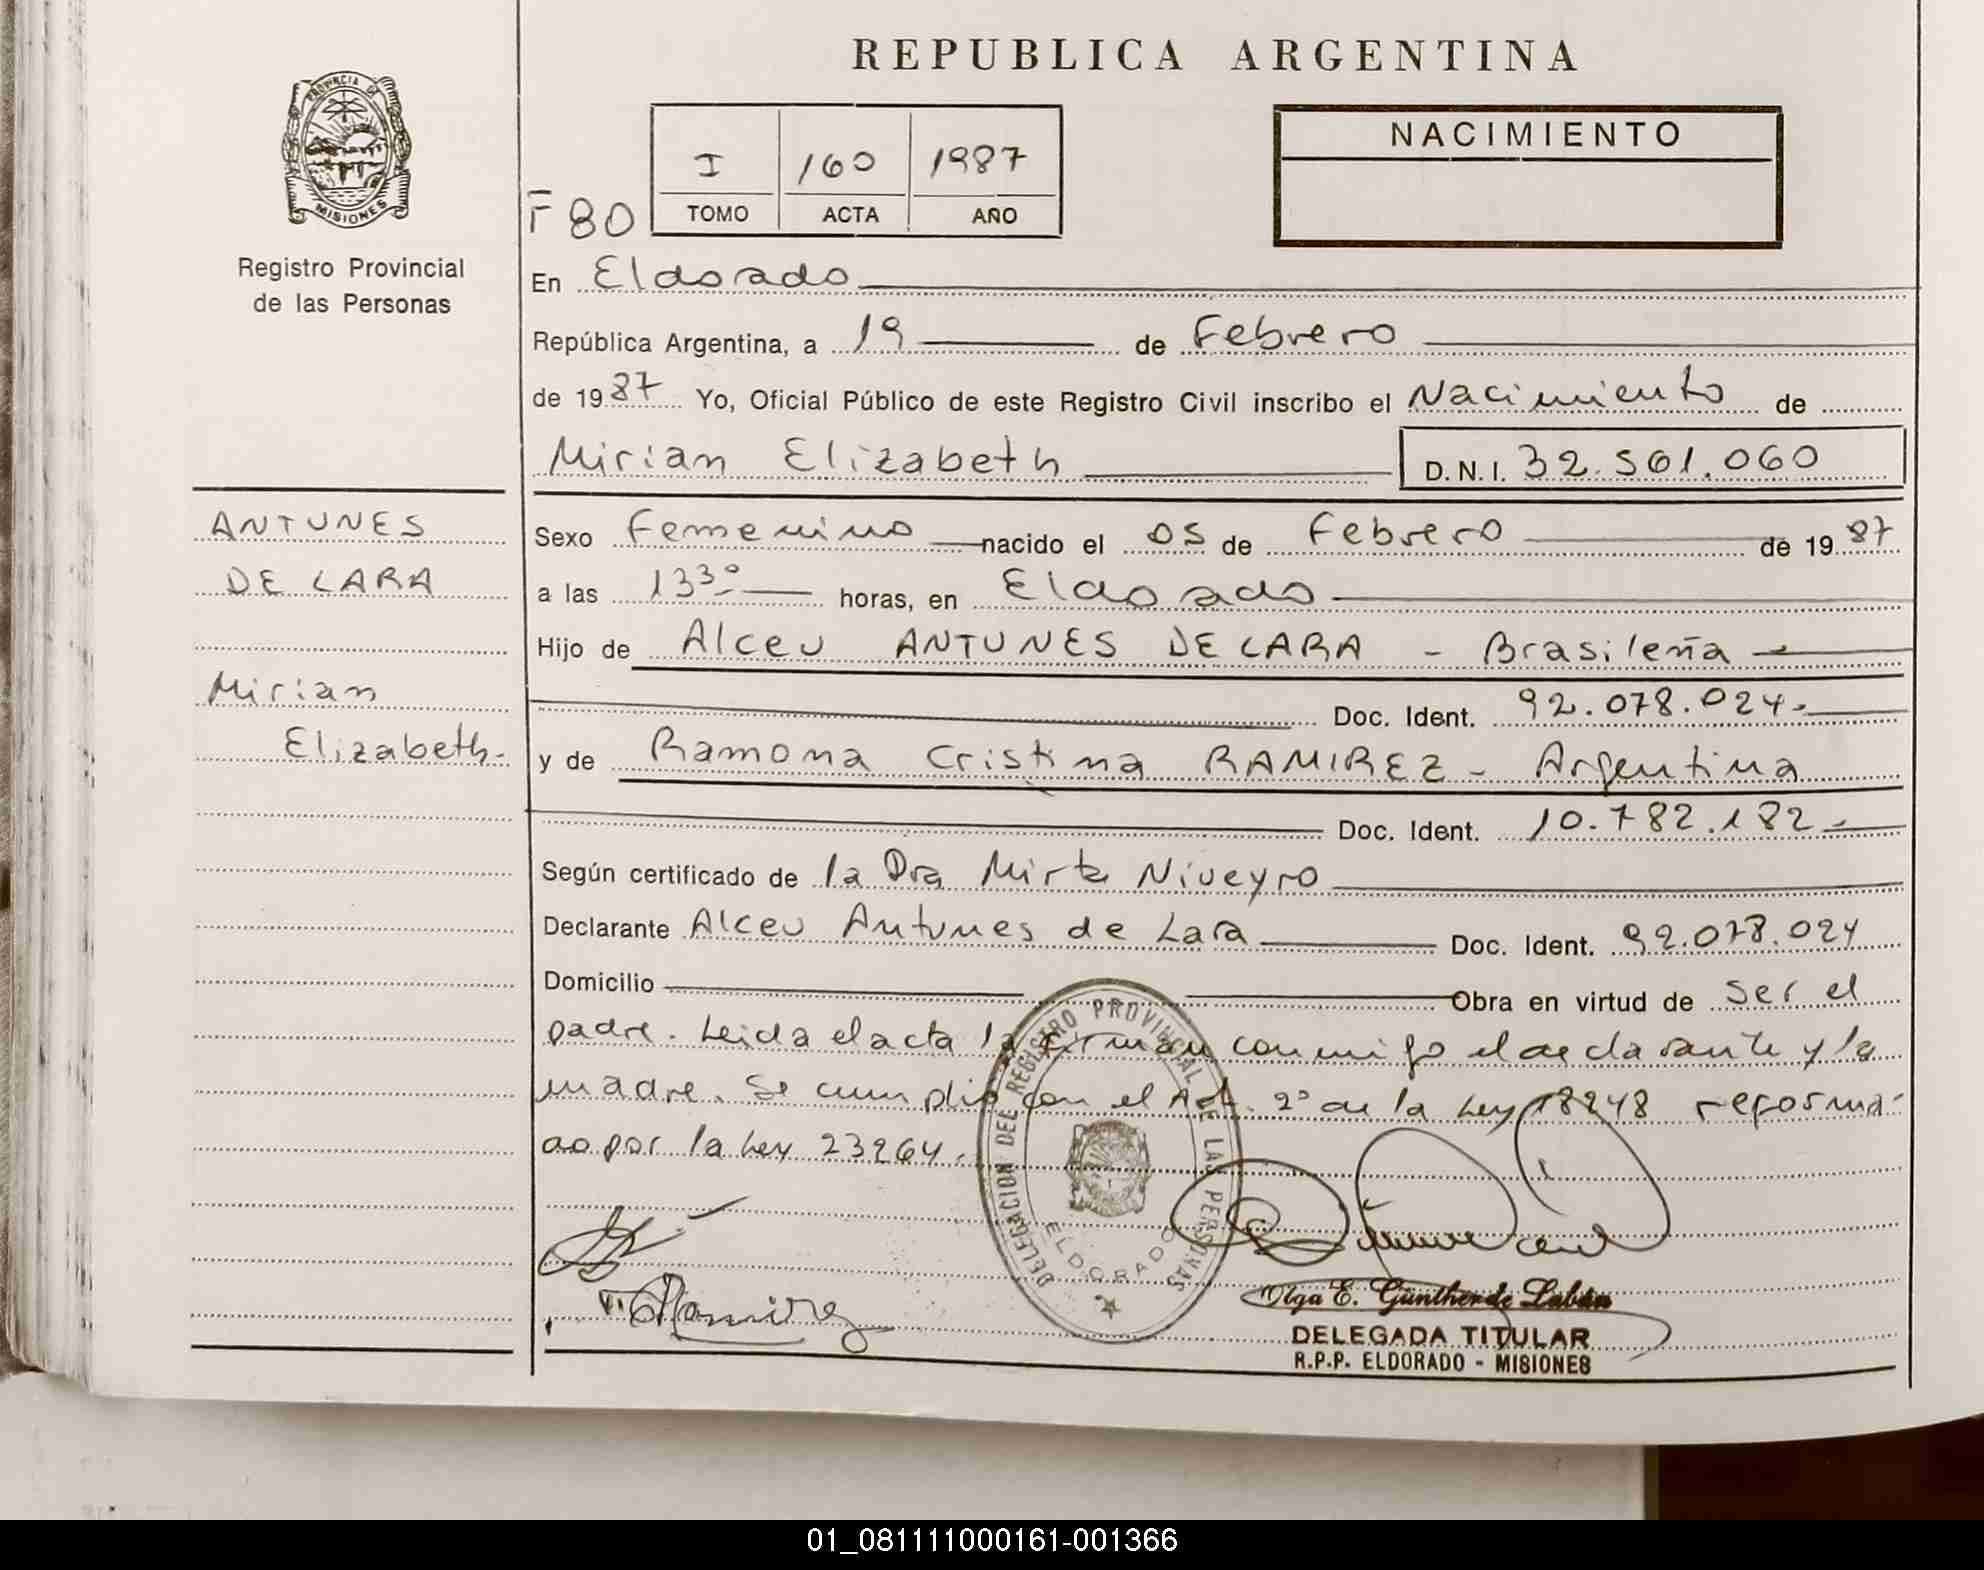 REPUBLICA ARGENTINA
PROVINCIA DE
MISIONES
Registro Provincial
de las Personas
I 160 1987
TOMO ACTA AÑO
F 80
NACIMIENTO
En Eldorado
República Argentina, a 19 de Febrero
de 1987 Yo, Oficial Público de este Registro Civil inscribo el Nacimiento de
Mirian Elizabeth D.N.I. 32.501.060
ANTUNES
DE LARA
Mirian
Elizabeth-
Sexo Femenino nacido el 05 de Febrero de 1987
a las 13³⁰ horas, en Eldorado
Hijo de Alceu ANTUNES DE LARA - Brasileña
Doc. Ident. 92.078.024.-
y de Ramona Cristina RAMIREZ - Argentina
Doc. Ident. 10.782.182.-
Según certificado de la Dra Mirta Niveyro
Declarante Alceu Antunes de Lara Doc. Ident. 92.078.024
Domicilio Obra en virtud de Ser el
padre. Leida el acta la firman conmigo el declarante y la
madre. Se cumplio con el Art. 2° de la Ley 18248 reforma-
do por la Ley 23264.
DELEGACION DEL REGISTRO PROVINCIAL DE LAS PERSONAS
ELDORADO
Ramirez
Olga E. Günther de Labán
DELEGADA TITULAR
R.P.P. ELDORADO - MISIONES
01_081111000161-001366